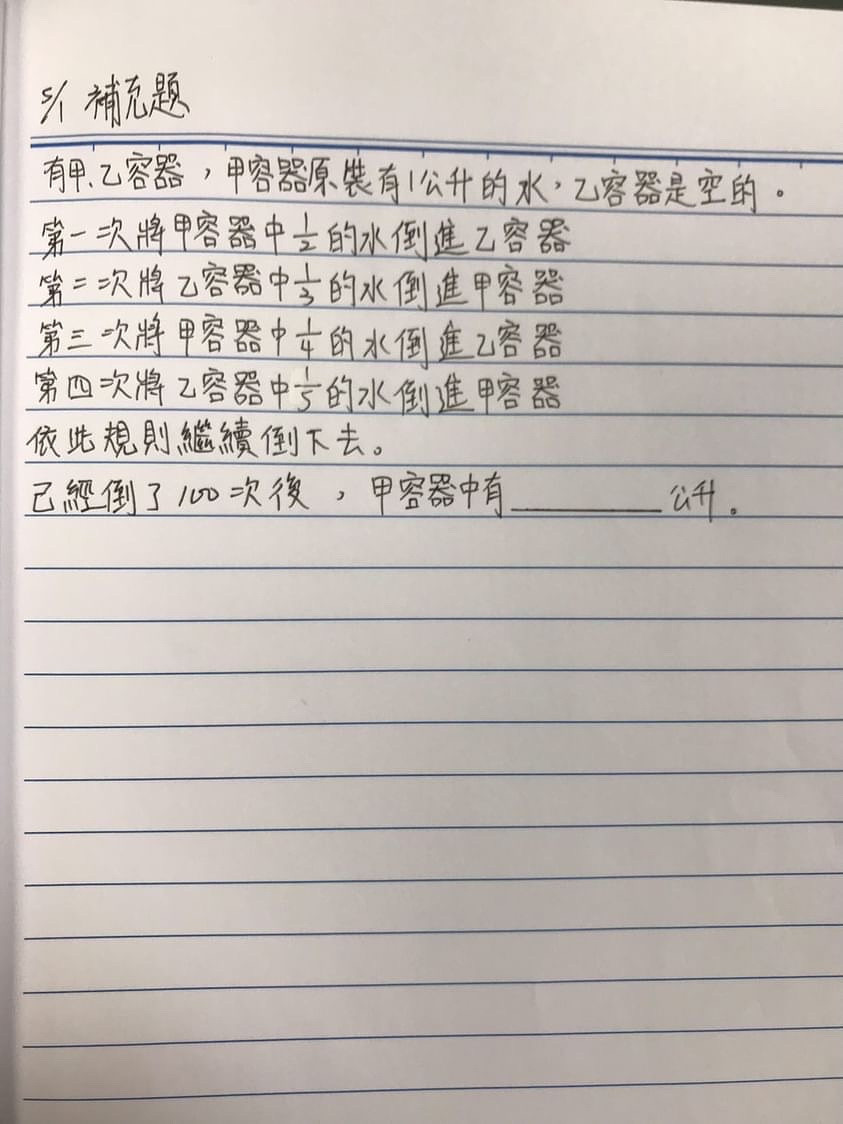 5/1 補充題
有甲、乙容器，甲容器原裝有1公升的水，乙容器是空的。
第一次將甲容器中1/2的水倒進乙容器
第二次將乙容器中1/3的水倒進甲容器
第三次將甲容器中1/4的水倒進乙容器
第四次將乙容器中1/5的水倒進甲容器
依此規則繼續倒下去。
已經倒了100次後，甲容器中有________公升。